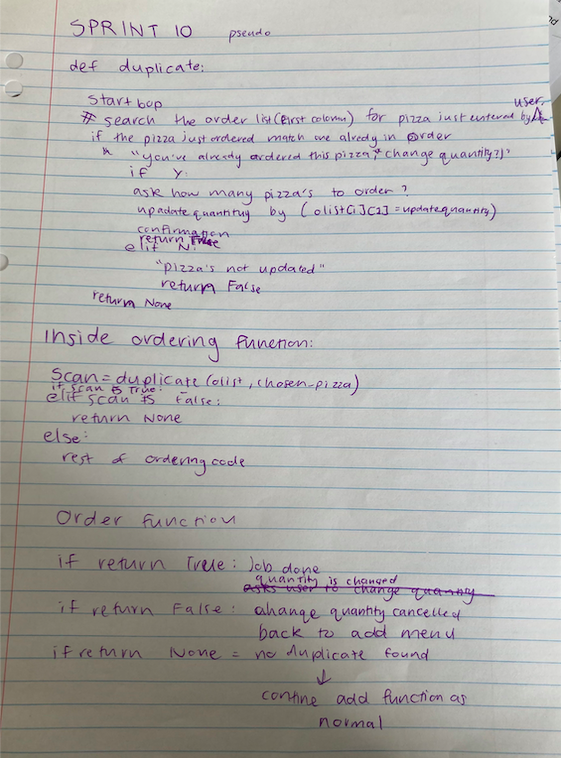 SPRINT 10 pseudo
def duplicate:
start loop
# search the order list (first column) for pizza just entered by user
if the pizza just ordered match one alredy in order
"you've already ordered this pizza, change quantity?"
if Y:
ask how many pizza's to order?
upadate quantituy by (olist[i][2] = updatequantity)
confirmation
return True
elif N:
"pizza's not updated"
return False
return None
Inside ordering function:
Scan = duplicate (olist, chosen_pizza)
if scan is True:
elif scan is False:
return None
else:
rest of ordering code
Order function
if return True: Job done
quantity is changed
asks user to change quantity
if return False: change quantity cancelled
back to add menu
if return None = no duplicate found
↓
contine add function as
normal